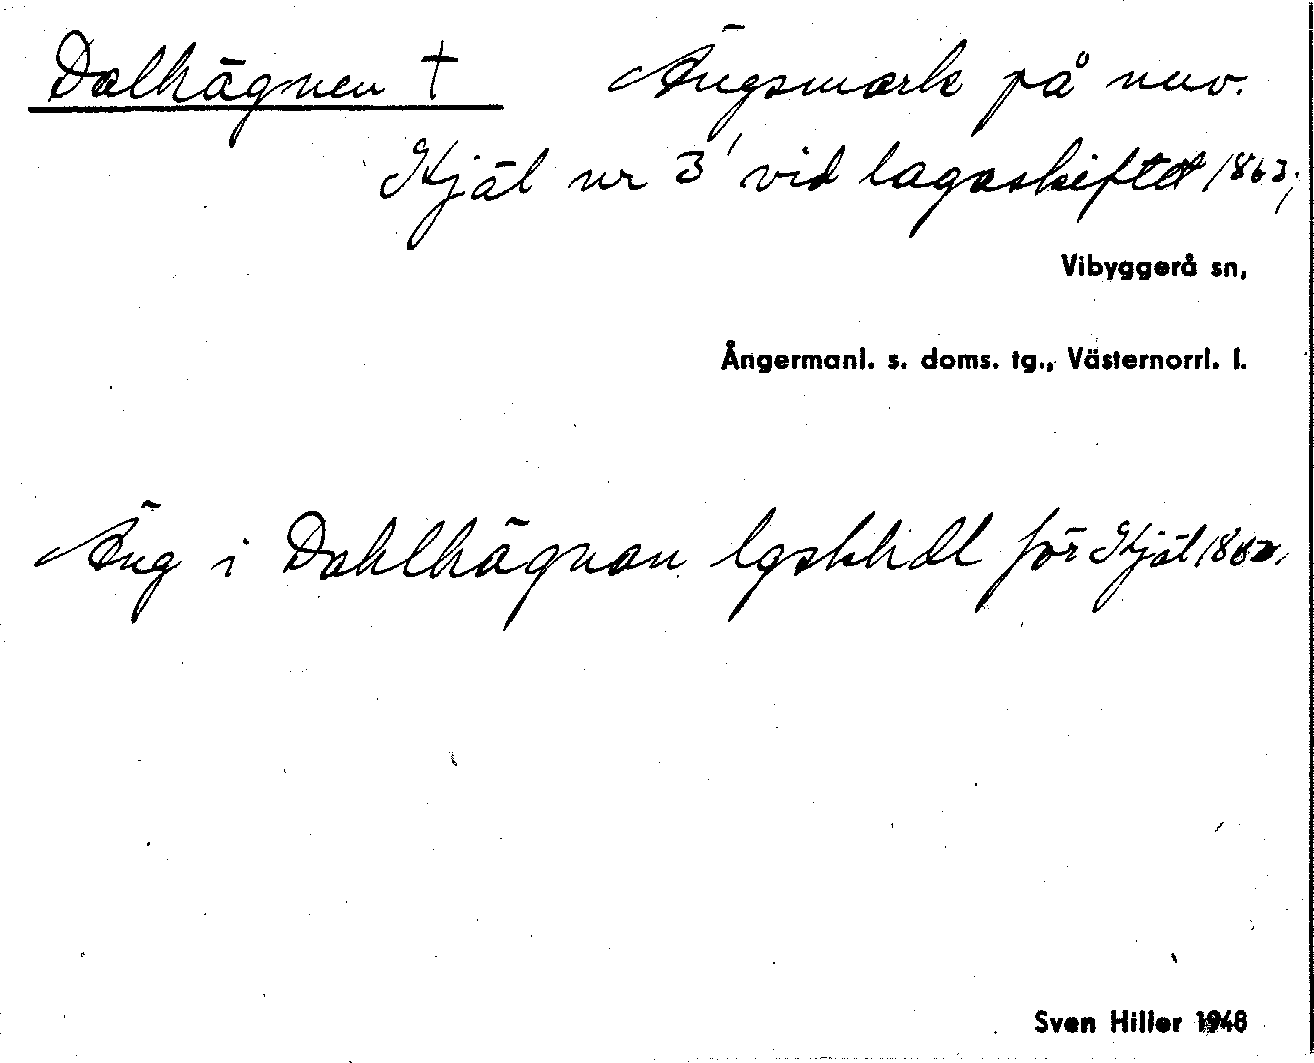 Dalhägnen † Ängsmark på nuv.
Kjäl nr 3' vid lagaskiftet 1863;
Vibyggerå sn,
Ångermanl. s. doms. tg., Västernorrl. l.
Äng i Dahlhägnan lgskhdl för Kjäl
Sven Hiller 1948